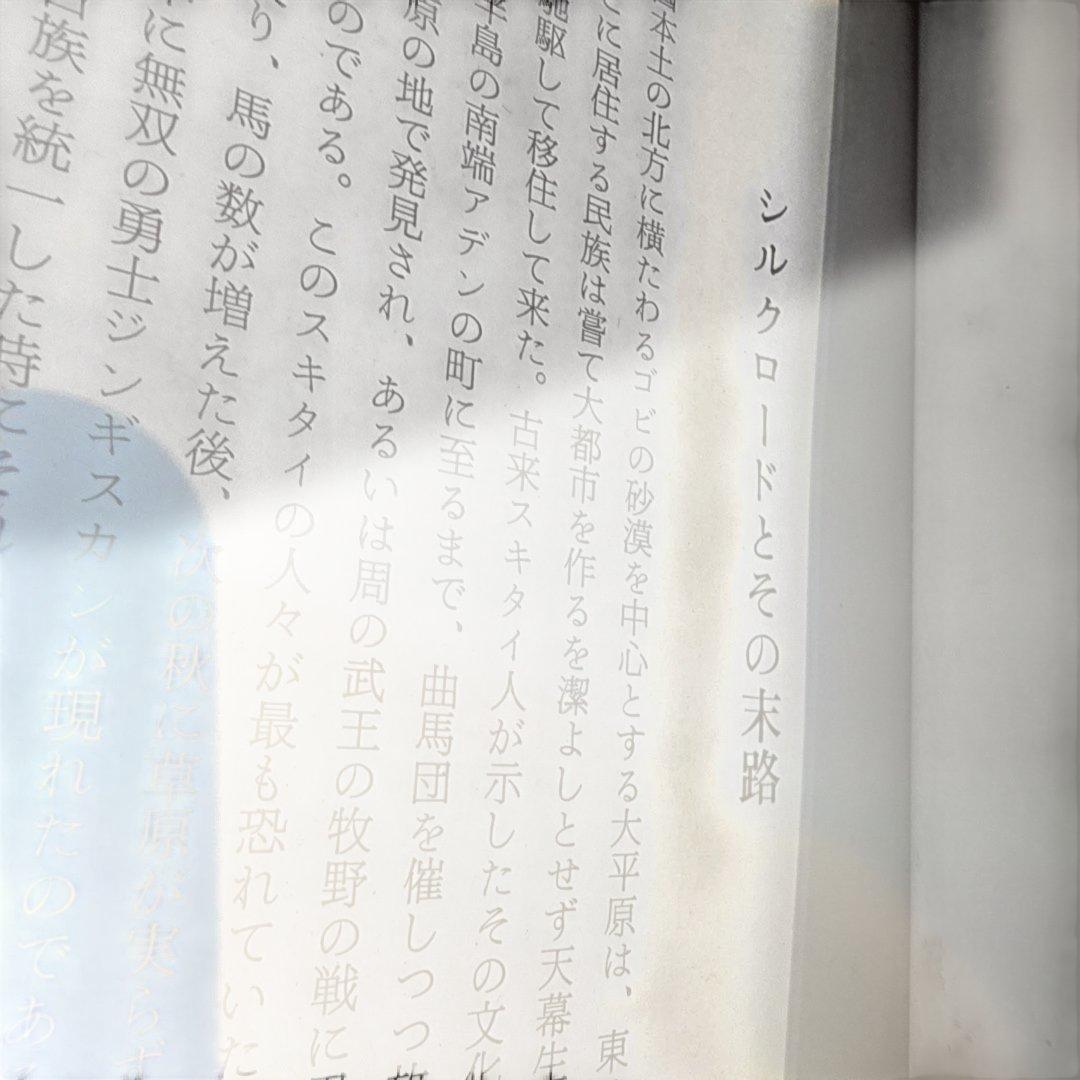 シルクロードとその末路
本土の北方に横たわるゴビの砂漠を中心とする大平原は、東
に居住する民族は嘗て大都市を作るを潔よしとせず天幕生
馳駆して移住して来た。古来スキタイ人が示したその文化
半島の南端アデンの町に至るまで、曲馬団を催しつつ
原の地で発見され、あるいは周の武王の牧野の戦に
のである。このスキタイの人々が最も恐れていた
り、馬の数が増えた後、次の秋に草原が実らず
に無双の勇士ジンギスカンが現れたのであ
族を統一した時にそれ